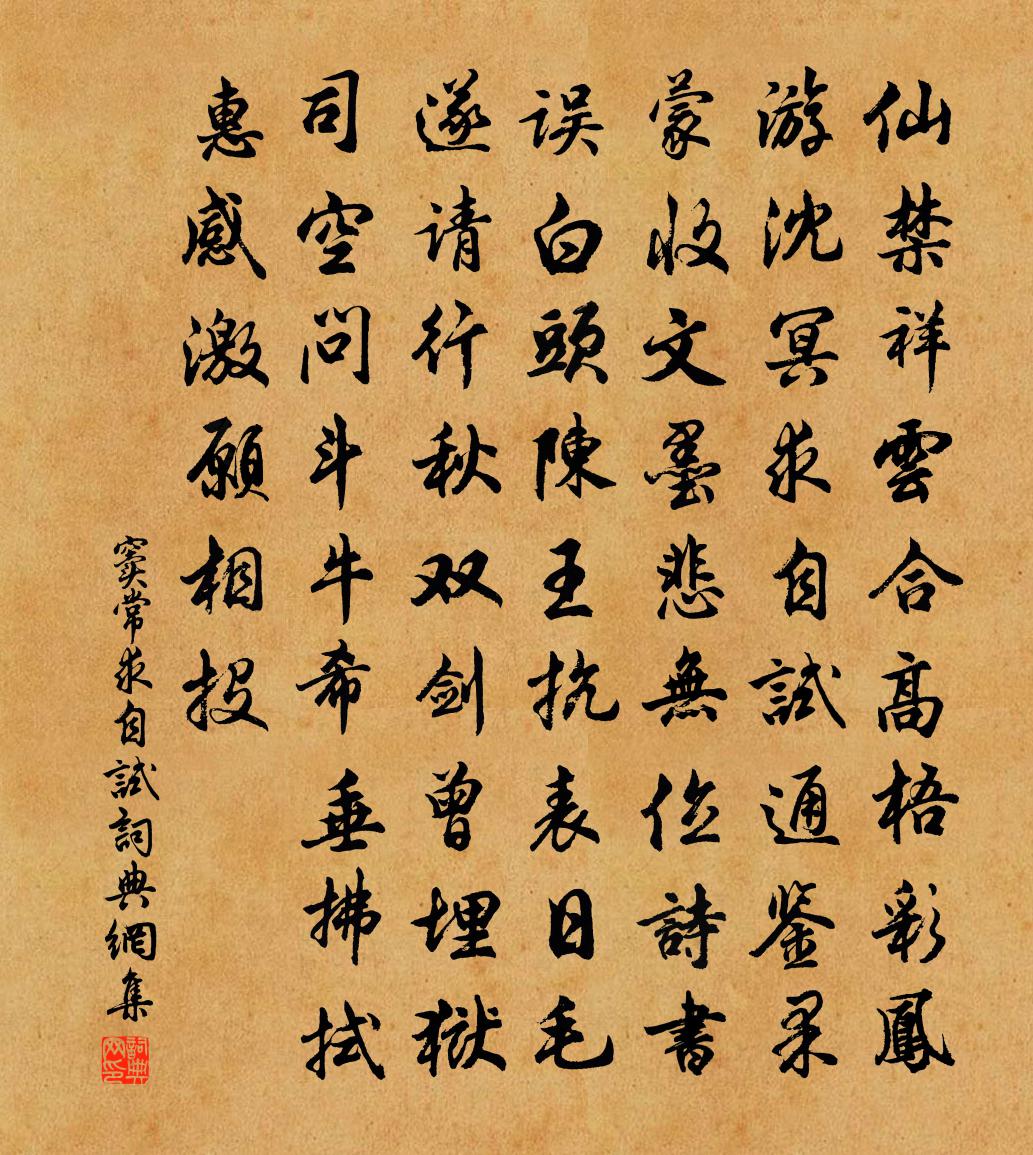 仙禁祥雲合高梧彩鳳
游沈冥求自試通鉴果
蒙收文墨悲無位詩書
误白頭陳王抗表日毛
遂请行秋双剑曾埋獄
司空問斗牛希垂拂拭
惠感激願相投
窦常求自試詞典網集
詞典网印